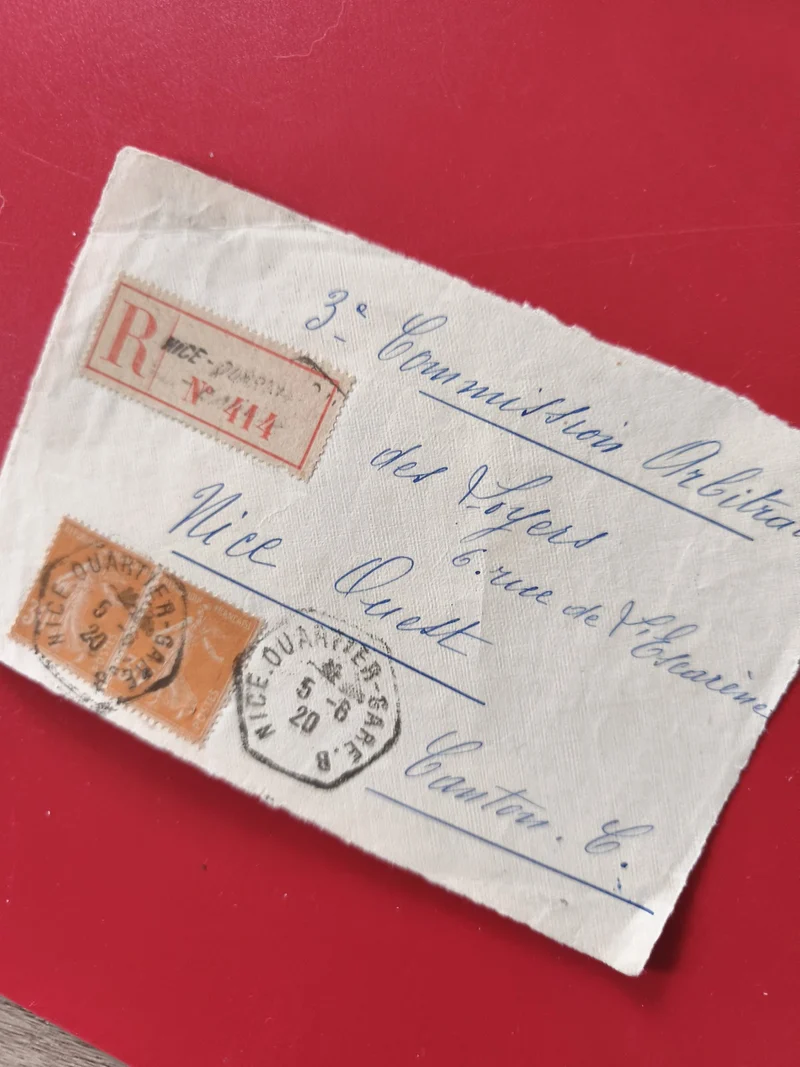 3e Commission Arbitra
des Loyers
6. rue de L'Escarène
Nice Ouest
Canton. C.
R
NICE-
N° 414
NICE. QUARTIER-GARE.
5 -6
20
NICE. QUARTIER-GARE. B
5 -6
20